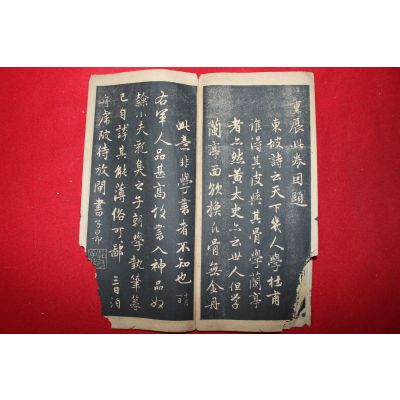 重展此卷因題
東坡詩云天下幾人學杜甫
誰得其皮與其骨學蘭亭
者亦然黃太史亦云世人但學
蘭亭面欲換凡骨無金丹
此意非學書者不知也 十月一日
右軍人品甚高故書入神品奴
隸小夫乳臭之子朝學執筆暮
已自誇其能薄俗可鄙 三日泊
舟虎陂待放閘書 子昂